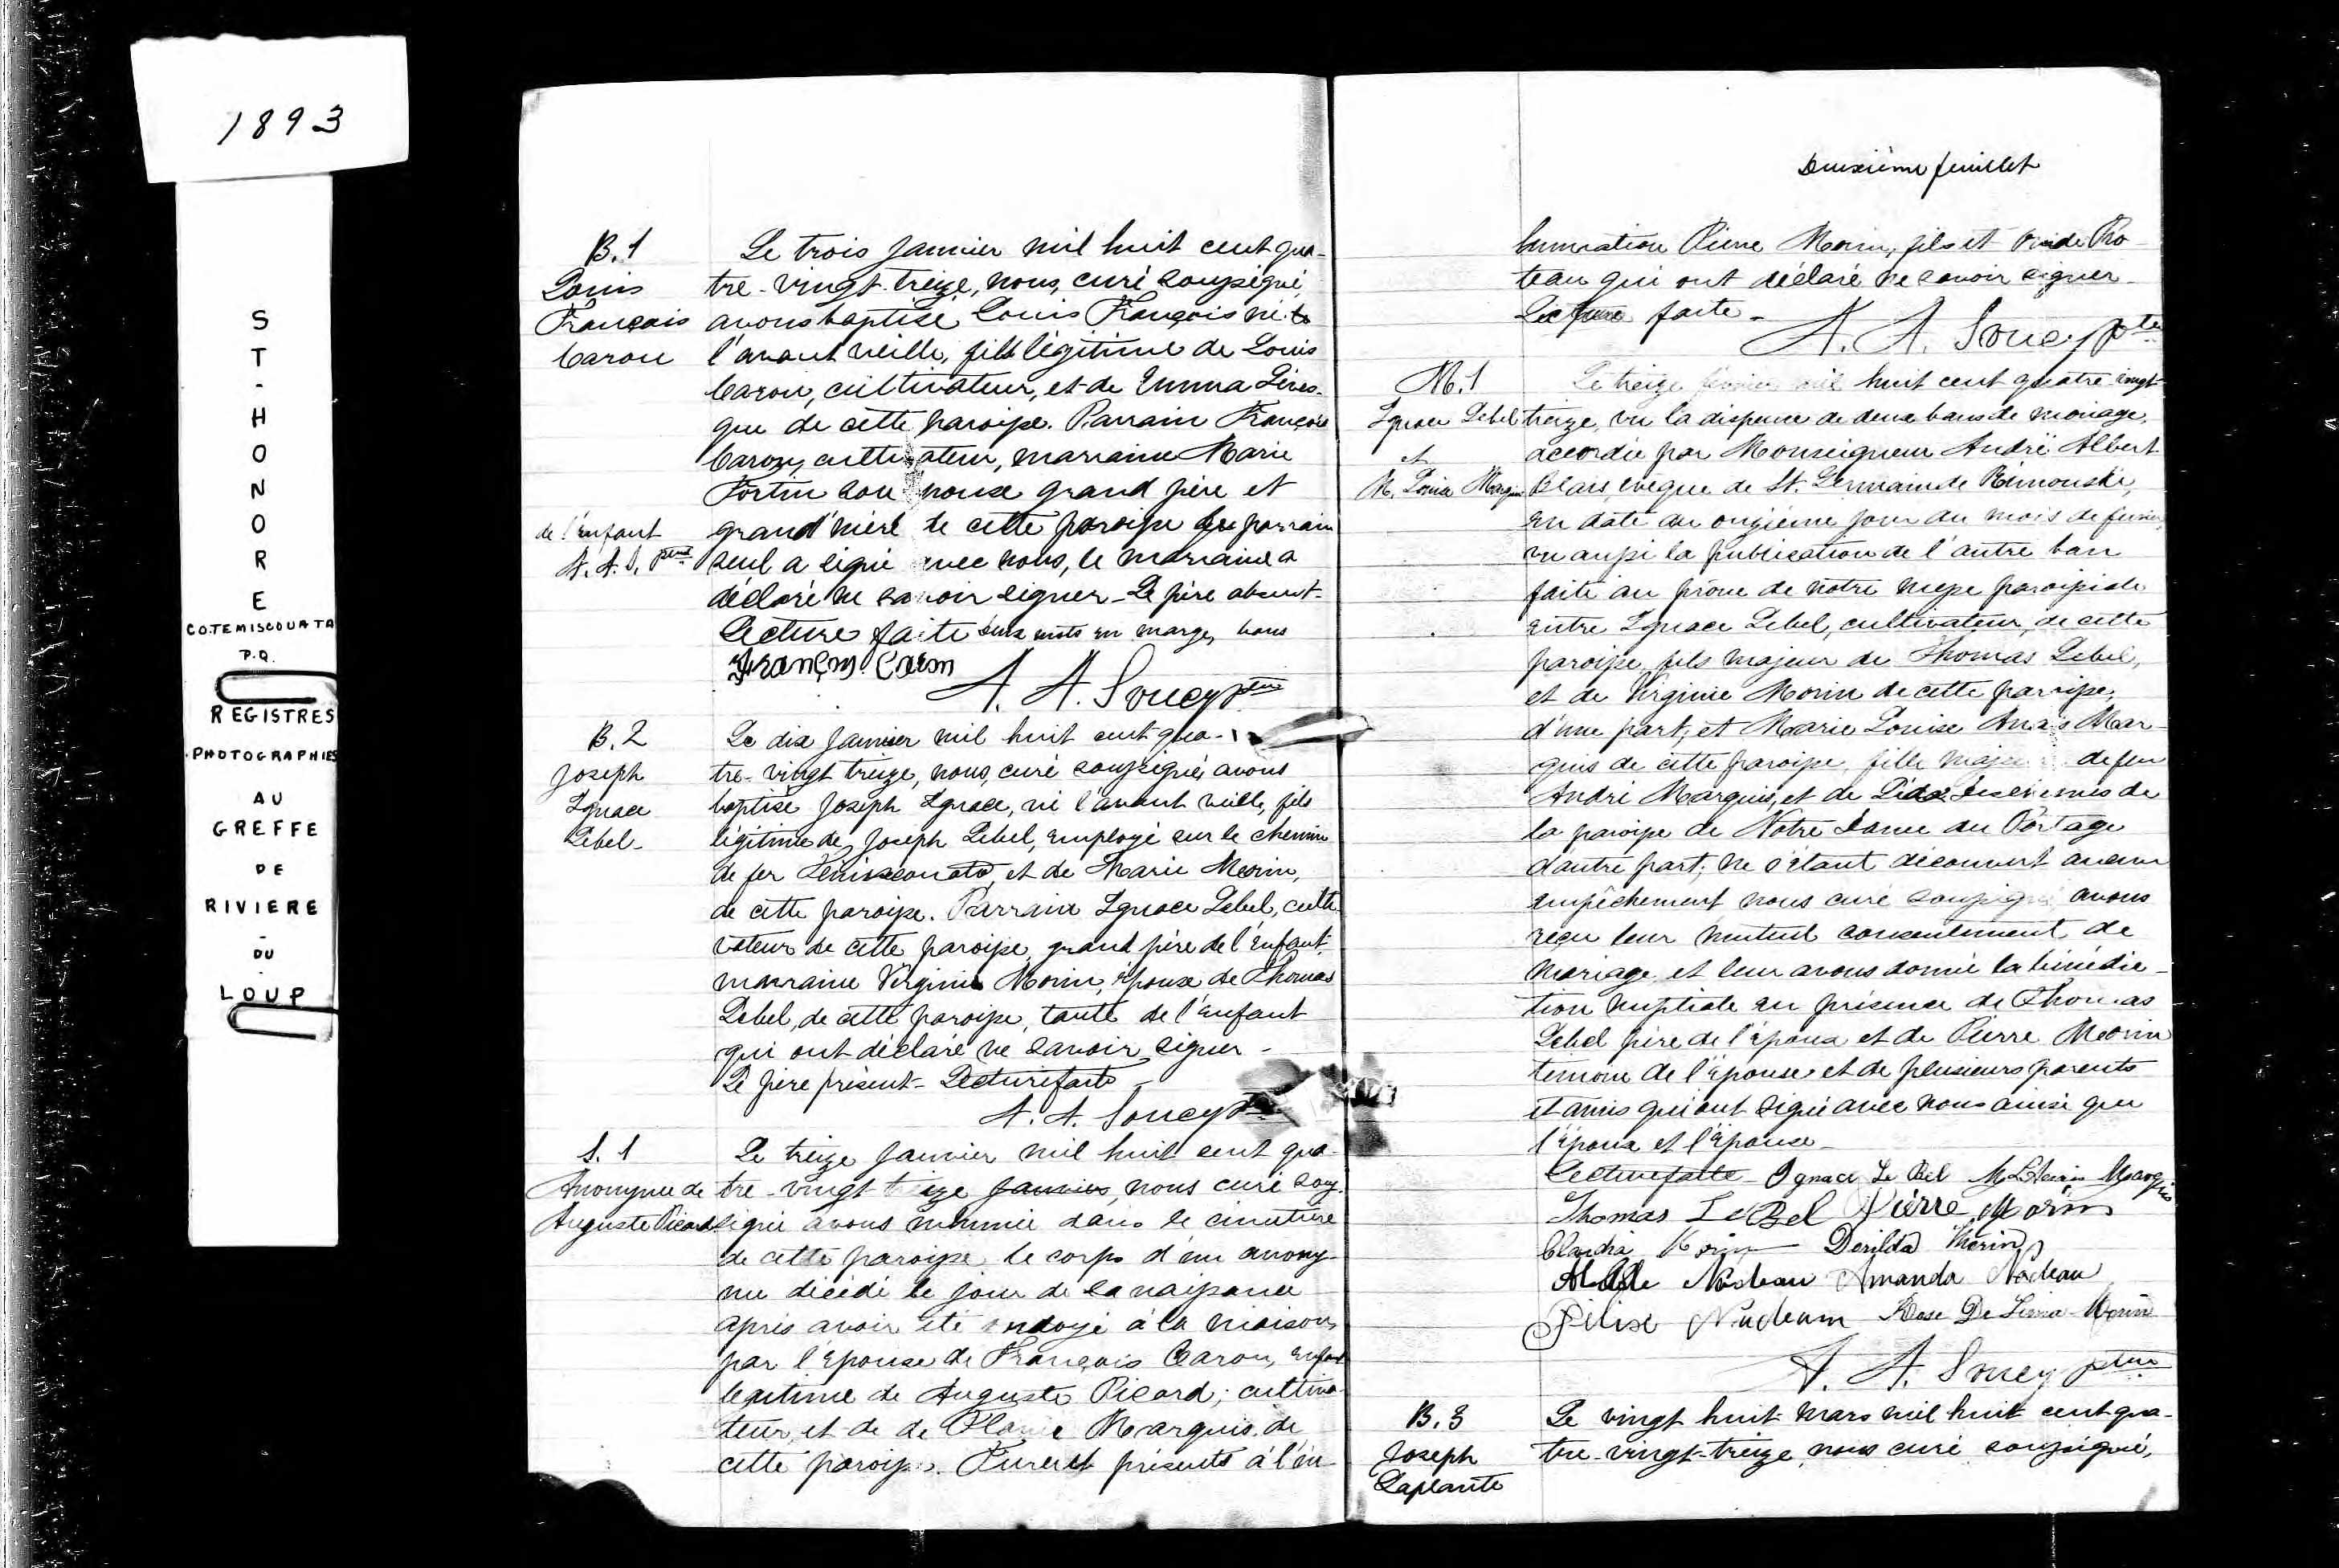 1893
ST-HONORE
CO.TEMISCOUATA
P.Q.
REGISTRES
PHOTOGRAPHIES
AU
GREFFE
DE
RIVIERE
-
DU
LOUP
B.1
Louis
François
Caron
Le trois Janvier mil huit cent qua-
tre-vingt-treize, nous, curé soussigné,
avons baptisé Louis François né
l'avant veille, fils légitime de Louis
Caron, cultivateur, et de Emma Léves-
que de cette paroisse. Parrain François
Caron, cultivateur, marraine Marie
Fortin son épouse grand père et
de l'enfant
A. A. S. ptre
grand'mère de cette paroisse Le parrain
seul a signé avec nous, la marraine a
déclaré ne savoir signer - Le père absent -
Lecture faite deux mots en marge, bons
François Caron
A. A. Soucy ptre
B.2
Joseph
Ignace
Lebel -
Le dix Janvier mil huit cent qua-
tre-vingt treize, nous, curé soussigné, avons
baptisé Joseph Ignace, né l'avant veille, fils
légitime de Joseph Lebel, employé sur le chemin
de fer Témiscouata, et de Marie Morin,
de cette paroisse. Parrain Ignace Lebel, culti-
vateur de cette paroisse, grand père de l'enfant
marraine Virginie Morin, épouse de Thomas
Lebel, de cette paroisse, tante de l'enfant
qui ont déclaré ne savoir signer -
Le père présent - Lecture faite -
A. A. Soucy ptre
S.1
Anonyme de
Auguste Picard
Le treize Janvier mil huit cent qua-
tre-vingt treize Janvier, nous curé sous-
signé avons inhumé dans le cimetière
de cette paroisse le corps d'un anony-
me décédé le jour de sa naissance
après avoir été ondoyé à la maison
par l'épouse de François Caron, enfant
legitime de Auguste Picard, cultiva-
teur, et de de Marquis de
cette paroisse. Furent présents à l'in-
Deuxième feuillet
humation Pierre Morin, fils et
teau qui ont déclaré ne savoir signer -
Lecture faite -
A. A. Soucy ptre
M.1
Ignace Lebel
et
M. Louise Marquis
Le treize février mil huit cent quatre-vingt-
treize, vu la dispense de deux bans de mariage,
accordée par Monseigneur André Albert
Blais, évêque de St. Germain de Rimouski,
en date du onzième jour du mois de février,
vu aussi la publication de l'autre ban
faite au prône de notre messe paroissiale
entre Ignace Lebel, cultivateur, de cette
paroisse, fils majeur de Thomas Lebel,
et de Virginie Morin de cette paroisse,
d'une part; et Marie Louise Anaïs Mar-
quis de cette paroisse, fille majeure de feu
André Marquis, et de
la paroisse de Notre Dame du Portage
d'autre part; ne s'étant découvert aucun
empêchement nous curé soussigné avons
reçu leur mutuel consentement de
mariage et leur avons donné la bénédic-
tion nuptiale en présence de Thomas
Lebel père de l'époux et de Pierre Morin
témoin de l'épouse et de plusieurs parents
et amis qui ont signé avec nous ainsi que
l'époux et l'épouse -
Lecture faite - Ignace Le Bel M L Anaïs Marquis
Thomas LeBel Pierre Morin
Claudia Morin Derilda Morin
Nadeau Amanda Nadeau
Félix Nadeau Rose De Lima Morin
A. A. Soucy ptre
B.3
Joseph
Laplante
Le vingt huit mars mil huit cent qua-
tre-vingt-treize, nous curé soussigné,